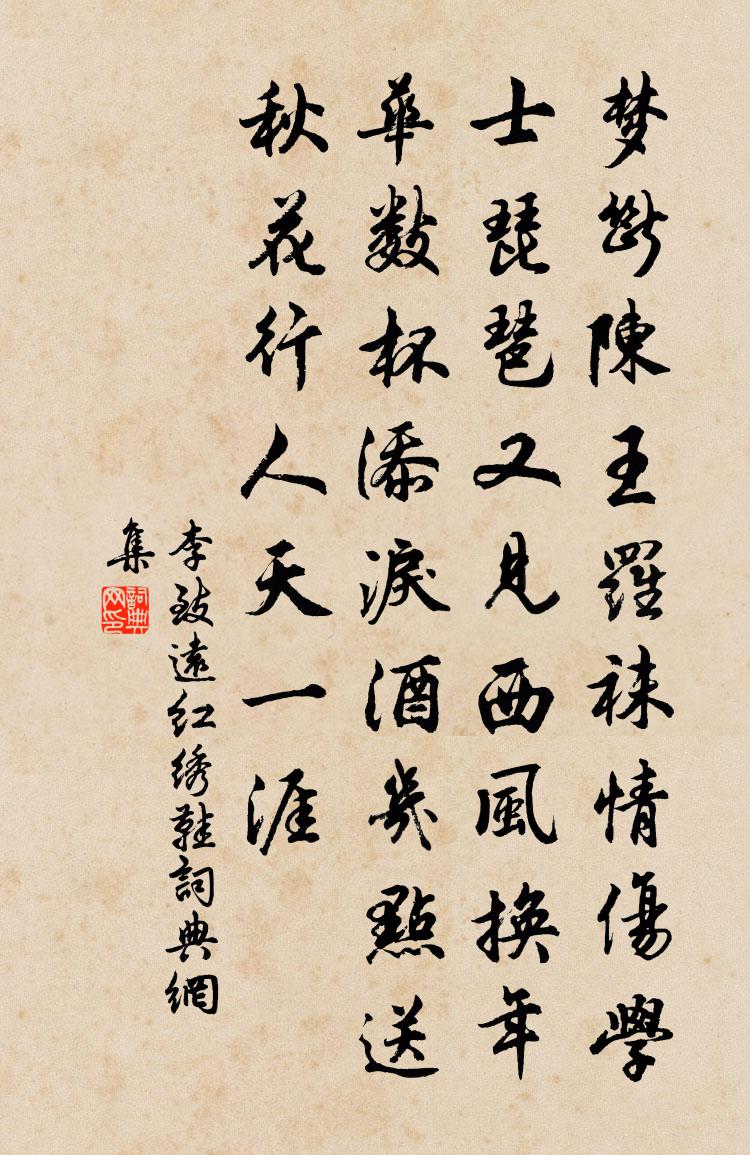 梦斷陳王羅袜情傷學
士琵琶又見西風換年
華數杯添淚酒幾點送
秋花行人天一涯
李致遠红绣鞋詞典網
集
詞典
网印